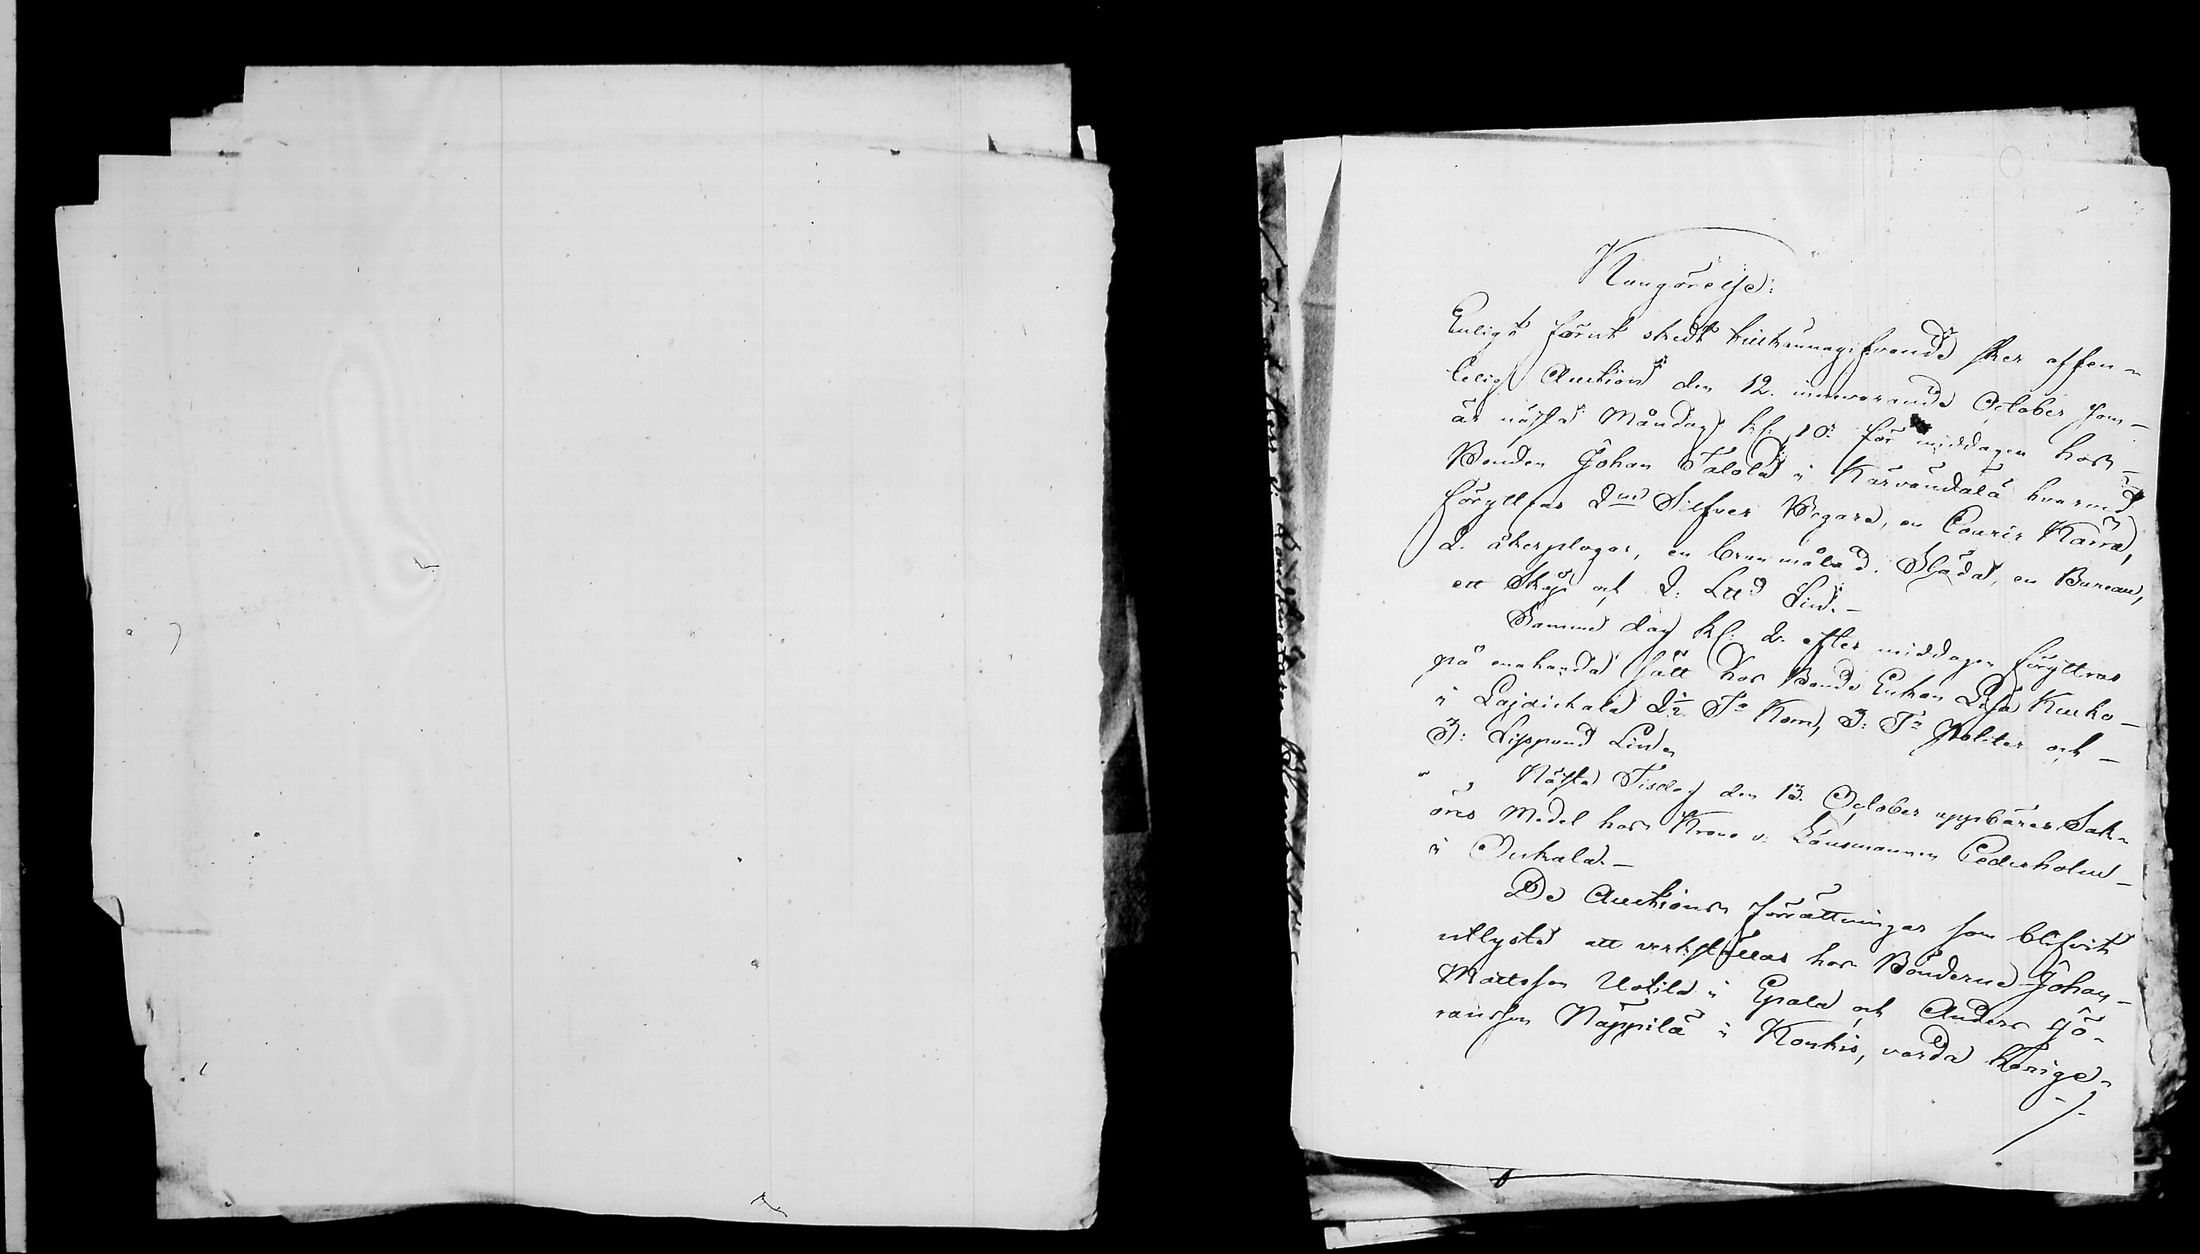 Kungörelse:
Enligt förut skedt tillkännagifvande sker offen-
telig Auction den 12. innevarande October som
är nästa Måndag kl. 10. för middagen hos
Bonden Johan Talola i Karvandala hvarvid
föryttras 2ne Silfver Bägare, en Courir Kärra,
2. åkerplogar, en brun målad Släda, en Bureau,
ett Skåp och 2. L℔ Lin.-
Samma dag kl. 2. efter middagen föryttras
på enahanda sätt hos Bonde Enkan Kurko
i 2½ Tr Korn, 3: Tr och
3: Lispund Lin
Nästa Tisdag den 13. October uppbäres Sak-
öres Medel hos Krono v. Länsmannen Cederholm
i Onkala.-
De Auctions förrättningar som blifvit
utlysta att verkställas hos Bönderne Johan
Mattsson Uotila i Epala och Anders Gö-
ransson Näppilä i Konkis, varda härige-